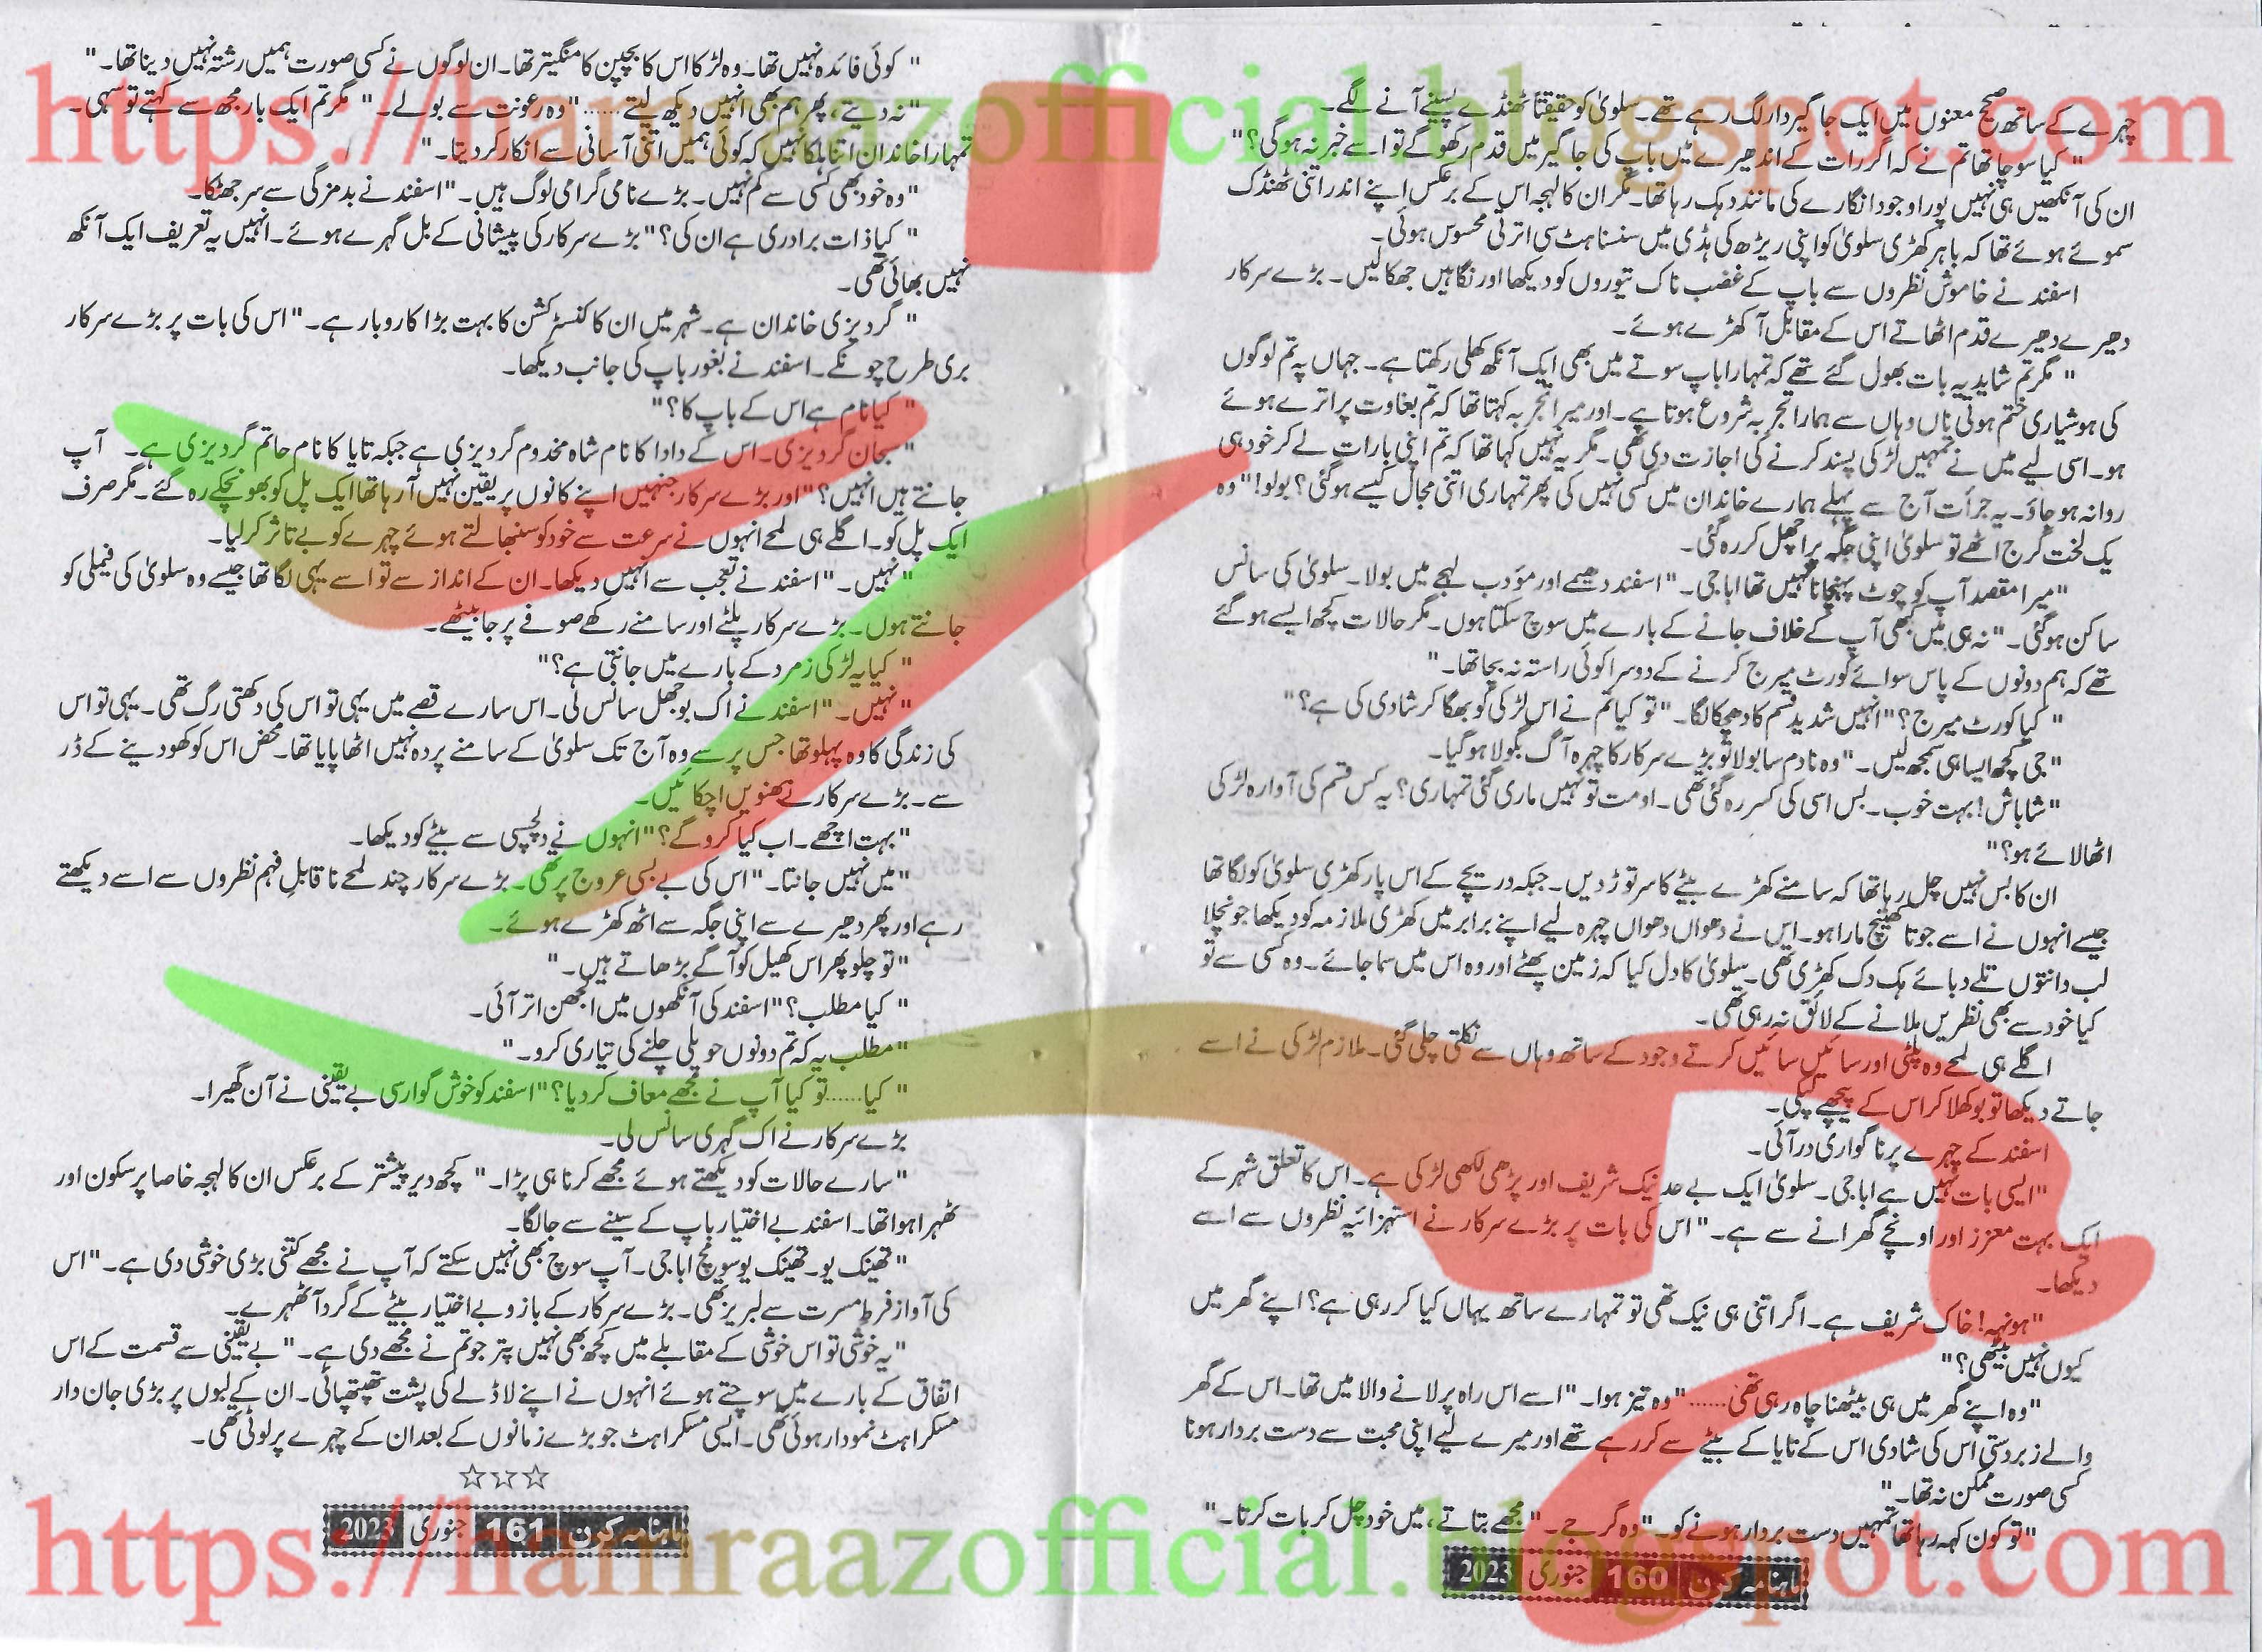 چہرے کے ساتھ صحیح معنوں میں ایک جاگیردار لگ رہے تھے۔ سلویٰ کو حقیقتاً ٹھنڈے پسینے آنے لگے۔
"کیا سوچا تھا تم نے کہ اگر رات کے اندھیرے میں باپ کی جاگیر میں قدم رکھو گے تو اسے خبر نہ ہوگی؟"
ان کی آنکھیں ہی نہیں پورا وجود انگارے کی مانند دہک رہا تھا۔ مگر ان کا لہجہ اس کے برعکس اپنے اندر اتنی ٹھنڈک
سموئے ہوئے تھا کہ باہر کھڑی سلویٰ کو اپنی ریڑھ کی ہڈی میں سنسناہٹ سی اترتی محسوس ہوئی۔
اسفند نے خاموش نظروں سے باپ کے غضب ناک تیوروں کو دیکھا اور نگاہیں جھکا لیں۔ بڑے سرکار
دھیرے دھیرے قدم اٹھاتے اس کے مقابل آ کھڑے ہوئے۔
"مگر تم شاید یہ بات بھول گئے تھے کہ تمہارا باپ سوتے میں بھی ایک آنکھ کھلی رکھتا ہے۔ جہاں پہ تم لوگوں
کی ہوشیاری ختم ہوتی ناں وہاں سے ہمارا تجربہ شروع ہوتا ہے۔ اور میرا تجربہ کہتا تھا کہ تم بغاوت پر اترے ہوئے
ہو۔ اسی لیے میں نے تمہیں لڑکی پسند کرنے کی اجازت دی تھی۔ مگر یہ نہیں کہا تھا کہ تم اپنی بارات لے کر خود ہی
روانہ ہو جاؤ۔ یہ جرأت آج سے پہلے ہمارے خاندان میں کسی نہیں کی پھر تمہاری اتنی مجال کیسے ہوگئی؟ بولو!" وہ
یک لخت گرج اٹھے تو سلویٰ اپنی جگہ پر اچھل کر رہ گئی۔
"میرا مقصد آپ کو چوٹ پہنچانا نہیں تھا اباجی۔" اسفند دھیمے اور مؤدب لہجے میں بولا۔ سلویٰ کی سانس
ساکن ہوگئی۔ "نہ ہی میں کبھی آپ کے خلاف جانے کے بارے میں سوچ سکتا ہوں۔ مگر حالات کچھ ایسے ہو گئے
تھے کہ ہم دونوں کے پاس سوائے کورٹ میرج کرنے کے دوسرا کوئی راستہ نہ بچا تھا۔"
"کیا کورٹ میرج؟" انہیں شدید قسم کا دھچکا لگا۔ "تو کیا تم نے اس لڑکی کو بھگا کر شادی کی ہے؟"
"جی کچھ ایسا ہی سمجھ لیں۔" وہ نادم سا بولا تو بڑے سرکار کا چہرہ آگ بگولا ہو گیا۔
"شاباش! بہت خوب۔ بس اسی کی کسر رہ گئی تھی۔ او مت تو نہیں ماری گئی تمہاری؟ یہ کس قسم کی آوارہ لڑکی
اٹھا لائے ہو؟"
ان کا بس نہیں چل رہا تھا کہ سامنے کھڑے بیٹے کا سر توڑ دیں۔ جبکہ دریچے کے اس پار کھڑی سلویٰ کو لگا تھا
جیسے انہوں نے اسے جوتا کھینچ مارا ہو۔ اس نے دھواں دھواں چہرہ لیے اپنے برابر میں کھڑی ملازمہ کو دیکھا جو نچلا
لب دانتوں تلے دبائے ہک دک کھڑی تھی۔ سلویٰ کا دل کیا کہ زمین پھٹے اور وہ اس میں سما جائے۔ وہ کسی سے تو
کیا خود سے بھی نظریں ملانے کے لائق نہ رہی تھی۔
اگلے ہی لمحے وہ پلٹی اور سائیں سائیں کرتے وجود کے ساتھ وہاں سے نکلتی چلی گئی۔ ملازم لڑکی نے اسے
جاتے دیکھا تو بوکھلا کر اس کے پیچھے لپکی۔
اسفند کے چہرے پر ناگواری در آئی۔
"ایسی بات نہیں ہے اباجی۔ سلویٰ ایک بے حد نیک شریف اور پڑھی لکھی لڑکی ہے۔ اس کا تعلق شہر کے
ایک بہت معزز اور اونچے گھرانے سے ہے۔" اس کی بات پر بڑے سرکار نے استہزائیہ نظروں سے اسے
دیکھا۔
"ہونہہ! خاک شریف ہے۔ اگر اتنی ہی نیک تھی تو تمہارے ساتھ یہاں کیا کر رہی ہے؟ اپنے گھر میں
کیوں نہیں بیٹھی؟"
"وہ اپنے گھر میں ہی بیٹھنا چاہ رہی تھی......" وہ تیز ہوا۔ "اسے اس راہ پر لانے والا میں تھا۔ اس کے گھر
والے زبردستی اس کی شادی اس کے تایا کے بیٹے سے کر رہے تھے اور میرے لیے اپنی محبت سے دست بردار ہونا
کسی صورت ممکن نہ تھا۔"
"تو کون کہہ رہا تھا تمہیں دست بردار ہونے کو۔" وہ گرجے۔ "مجھے بتاتے، میں خود چل کر بات کرتا۔"
ماہنامہ کرن 160 جنوری 2023
"کوئی فائدہ نہیں تھا۔ وہ لڑکا اس کا بچپن کا منگیتر تھا۔ ان لوگوں نے کسی صورت ہمیں رشتہ نہیں دینا تھا۔"
"نہ دیتے، پھر ہم بھی انہیں دیکھ لیتے......" وہ رعونت سے بولے۔ "مگر تم ایک بار مجھ سے کہتے تو سہی۔
تمہارا خاندان اتنا ہلکا نہیں کہ کوئی ہمیں اتنی آسانی سے انکار کر دیتا۔"
"وہ خود بھی کسی سے کم نہیں۔ بڑے نامی گرامی لوگ ہیں۔" اسفند نے بدمزگی سے سر جھٹکا۔
"کیا ذات برادری ہے ان کی؟" بڑے سرکار کی پیشانی کے بل گہرے ہوئے۔ انہیں یہ تعریف ایک آنکھ
نہیں بھائی تھی۔
"گردیزی خاندان ہے۔ شہر میں ان کا کنسٹرکشن کا بہت بڑا کاروبار ہے۔" اس کی بات پر بڑے سرکار
بری طرح چونکے۔ اسفند نے بغور باپ کی جانب دیکھا۔
"کیا نام ہے اس کے باپ کا؟"
"سبحان گردیزی۔ اس کے دادا کا نام شاہ مخدوم گردیزی ہے جبکہ تایا کا نام حاتم گردیزی ہے۔ آپ
جانتے ہیں انہیں؟" اور بڑے سرکار جنہیں اپنے کانوں پر یقین نہیں آ رہا تھا ایک پل کو بھونچکے رہ گئے۔ مگر صرف
ایک پل کو۔ اگلے ہی لمحے انہوں نے سرعت سے خود کو سنبھالتے ہوئے چہرے کو بے تاثر کر لیا۔
"نہیں۔" اسفند نے تعجب سے انہیں دیکھا۔ ان کے انداز سے تو اسے یہی لگا تھا جیسے وہ سلویٰ کی فیملی کو
جانتے ہوں۔ بڑے سرکار پلٹے اور سامنے رکھے صوفے پر جا بیٹھے۔
"کیا یہ لڑکی زمرد کے بارے میں جانتی ہے؟"
"نہیں۔" اسفند نے اک بوجھل سانس لی۔ اس سارے قصے میں یہی تو اس کی دکھتی رگ تھی۔ یہی تو اس
کی زندگی کا وہ پہلو تھا جس پر سے وہ آج تک سلویٰ کے سامنے پردہ نہیں اٹھا پایا تھا۔ محض اس کو کھو دینے کے ڈر
سے۔ بڑے سرکار نے بھنویں اچکائیں۔
"بہت اچھے۔ اب کیا کرو گے؟" انہوں نے دلچسپی سے بیٹے کو دیکھا۔
"میں نہیں جانتا۔" اس کی بے بسی عروج پر تھی۔ بڑے سرکار چند لمحے ناقابلِ فہم نظروں سے اسے دیکھتے
رہے اور پھر دھیرے سے اپنی جگہ سے اٹھ کھڑے ہوئے۔
"تو چلو پھر اس کھیل کو آگے بڑھاتے ہیں۔"
"کیا مطلب؟" اسفند کی آنکھوں میں الجھن اتر آئی۔
"مطلب یہ کہ تم دونوں حویلی چلنے کی تیاری کرو۔"
"کیا......تو کیا آپ نے مجھے معاف کر دیا؟" اسفند کو خوش گوار سی بے یقینی نے آن گھیرا۔
بڑے سرکار نے اک گہری سانس لی۔
"سارے حالات کو دیکھتے ہوئے مجھے کرنا ہی پڑا۔" کچھ دیر پیشتر کے برعکس ان کا لہجہ خاصا پرسکون اور
ٹھہرا ہوا تھا۔ اسفند بے اختیار باپ کے سینے سے جا لگا۔
"تھینک یو۔ تھینک یو سو مچ اباجی۔ آپ سوچ بھی نہیں سکتے کہ آپ نے مجھے کتنی بڑی خوشی دی ہے۔" اس
کی آواز فرطِ مسرت سے لبریز تھی۔ بڑے سرکار کے بازو بے اختیار بیٹے کے گرد آ ٹھہرے۔
"یہ خوشی تو اس خوشی کے مقابلے میں کچھ بھی نہیں پتر جو تم نے مجھے دی ہے۔" بے یقینی سے قسمت کے اس
اتفاق کے بارے میں سوچتے ہوئے انہوں نے اپنے لاڈلے کی پشت تھپتھپائی۔ ان کے لبوں پر بڑی جان دار
مسکراہٹ نمودار ہوئی تھی۔ ایسی مسکراہٹ جو بڑے زمانوں کے بعد ان کے چہرے پر لوٹی تھی۔
☆☆☆
ماہنامہ کرن 161 جنوری 2023
https://hamraazofficial.blogspot.com
https://hamraazofficial.blogspot.com